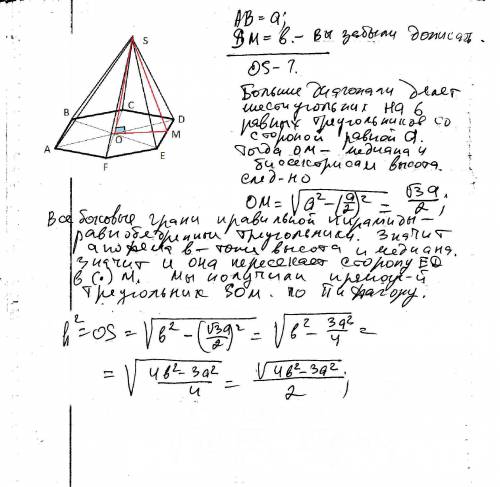 S
AB = a;
BM = в. - Вы забыли дописать.
OS - ?
B
C
D
O
M
A
E
F
Большие диагонали делят
шестиугольник на 6
равных треугольников со
стороной равной a.
Тогда OM - медиана и
биссектриса и высота.
след-но
OM = √(a² - (a/2)²) = √3a/2;
Все боковые грани правильной пирамиды -
равнобедренный треугольники. Значит
апофема в - тоже высота и медиана.
Значит и она пересекает сторону ED
в (·) M. Мы получили прямоуг-й
треугольник SOM. По Пифагору.
h² = OS = √(в² - (√3a/2)²) = √(в² - 3a²/4) =
= √((4в² - 3a²)/4) = √(4в² - 3a²)/2;